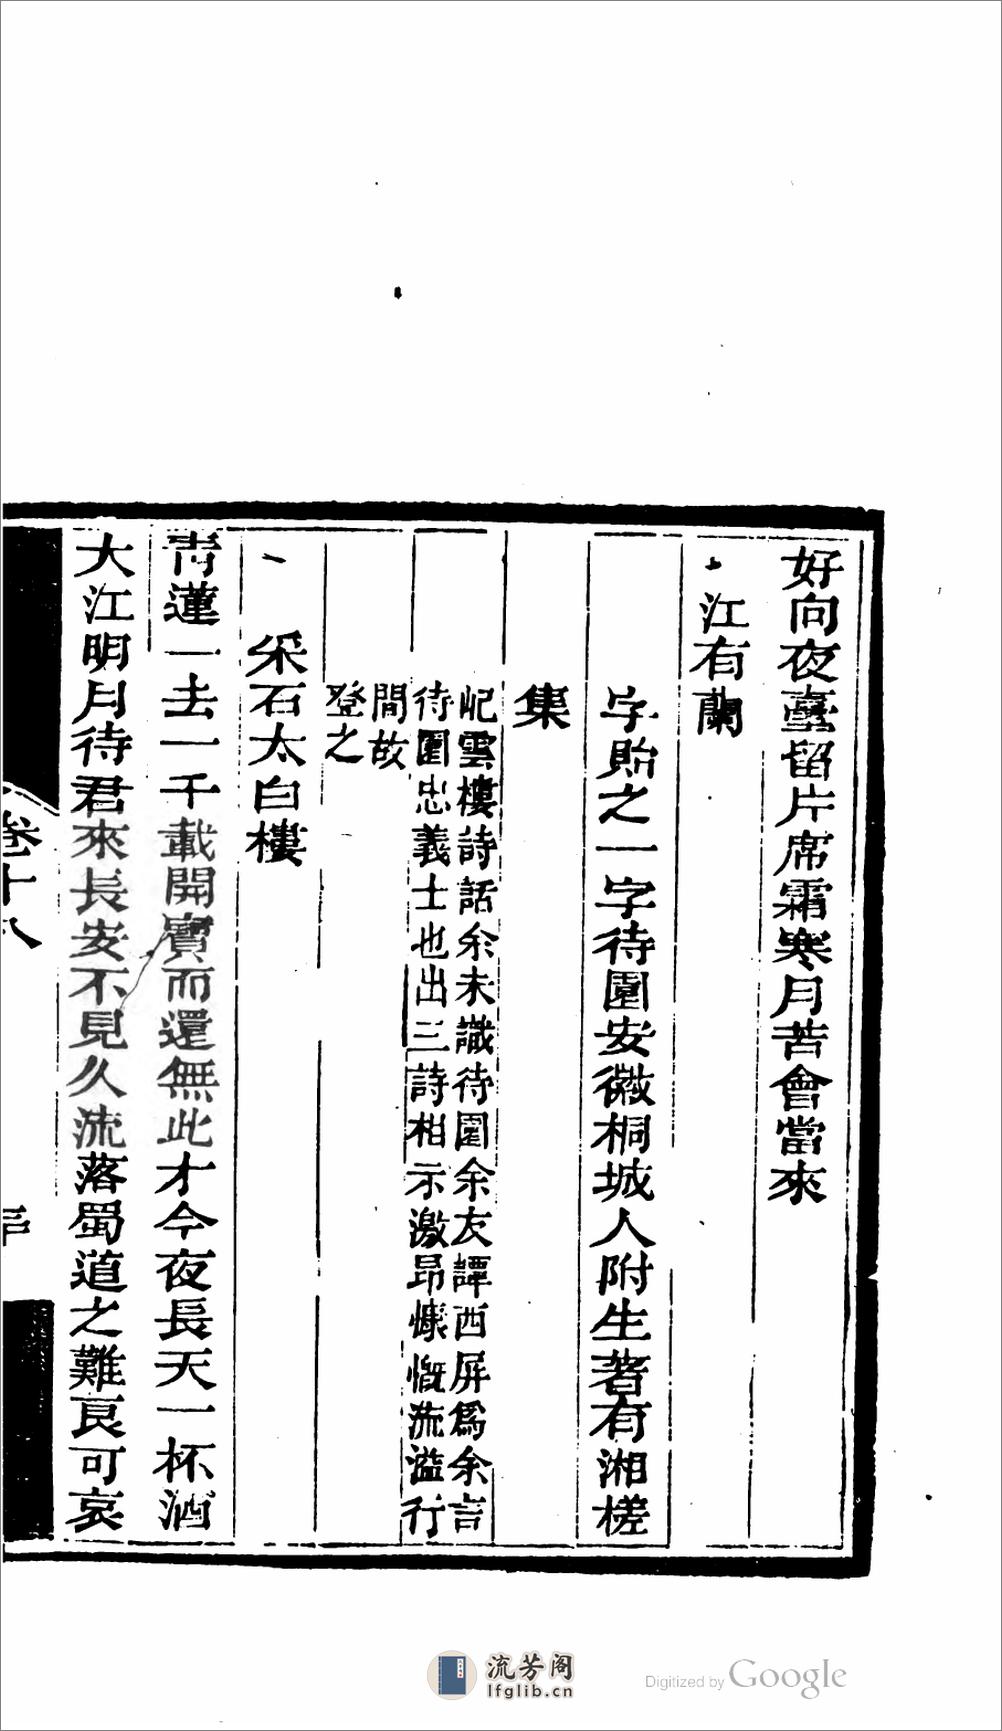 好向夜臺留片席霜寒月苦會當來
江有蘭
字貽之一字待園安徽桐城人附生著有湘槎
集
屺雲樓詩話余未識待園余友譚西屏爲余言
待園忠義士也出三詩相示激昂慷慨流溢行
間故
登之
采石太白樓
青蓮一去一千載開寶而還無此才今夜長天一杯酒
大江明月待君來長安不見久流落蜀道之難良可哀
卷十八
流芳阁
lfglib.cn
Digitized by Google